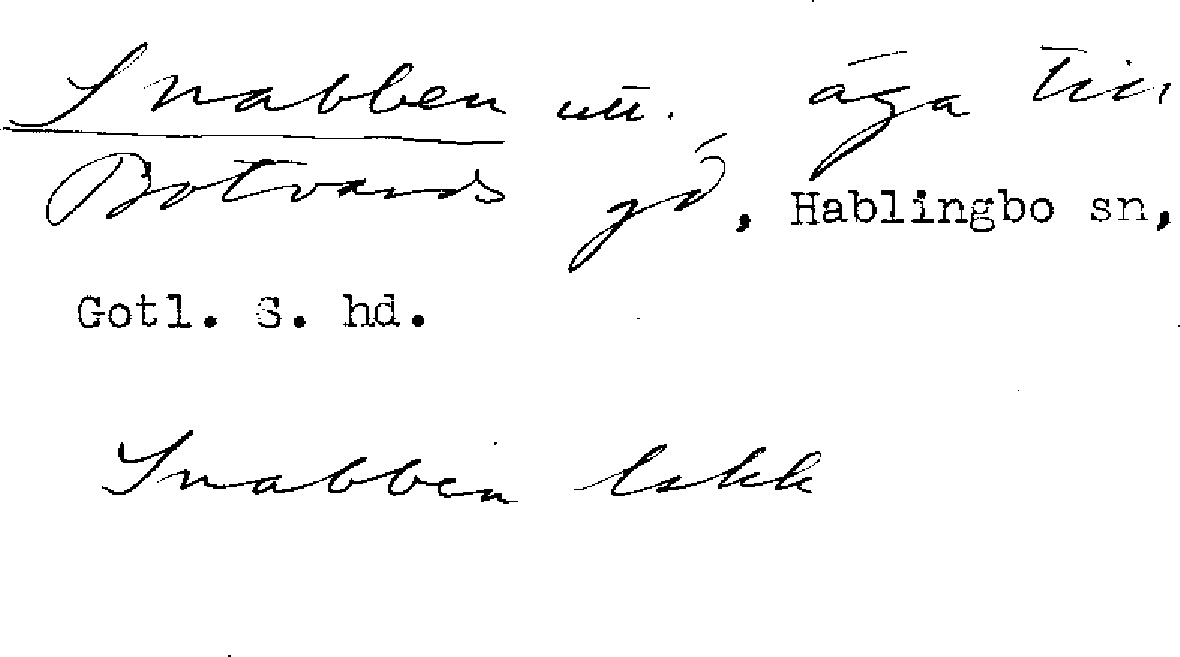 Snabben utt. äga till
Botvards gd, Hablingbo sn,
Gotl. S. hd.
Snabben